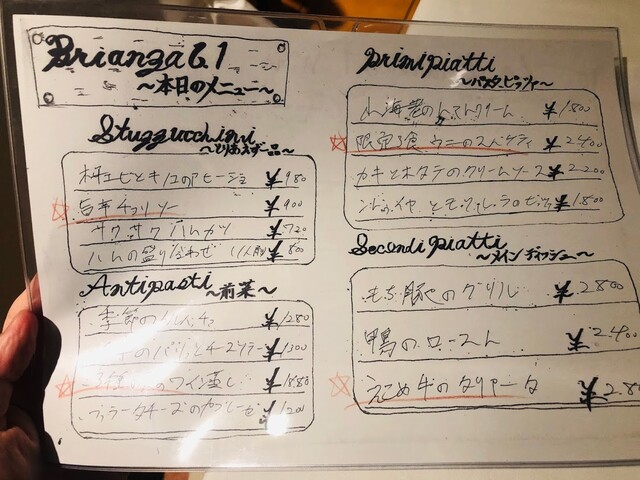 Brianza 6.1
〜本日のメニュー〜
Stuzzucchini
〜とりあえず一品〜
エビとキノコのアヒージョ ¥980
旨辛チョリソー ¥900
サクサクハムカツ ¥720
ハムの盛り合わせ 1人前 ¥800
Antipasti
〜前菜〜
季節の ¥1280
のパリッとチーズ ¥1300
のワイン蒸し ¥1880
ブッラータチーズのカプレーゼ ¥1200
primi piatti
〜パスタ、ピッツァ〜
海老のトマトクリーム ¥1800
限定3食 ウニのスパゲティ ¥2400
カキとホタテのクリームソース ¥2200
とモッツァレラのピッツァ ¥1800
Secondi piatti
〜メインディッシュ〜
もち豚のグリル ¥2800
鴨のロースト ¥2400
牛のタリアータ ¥2.8